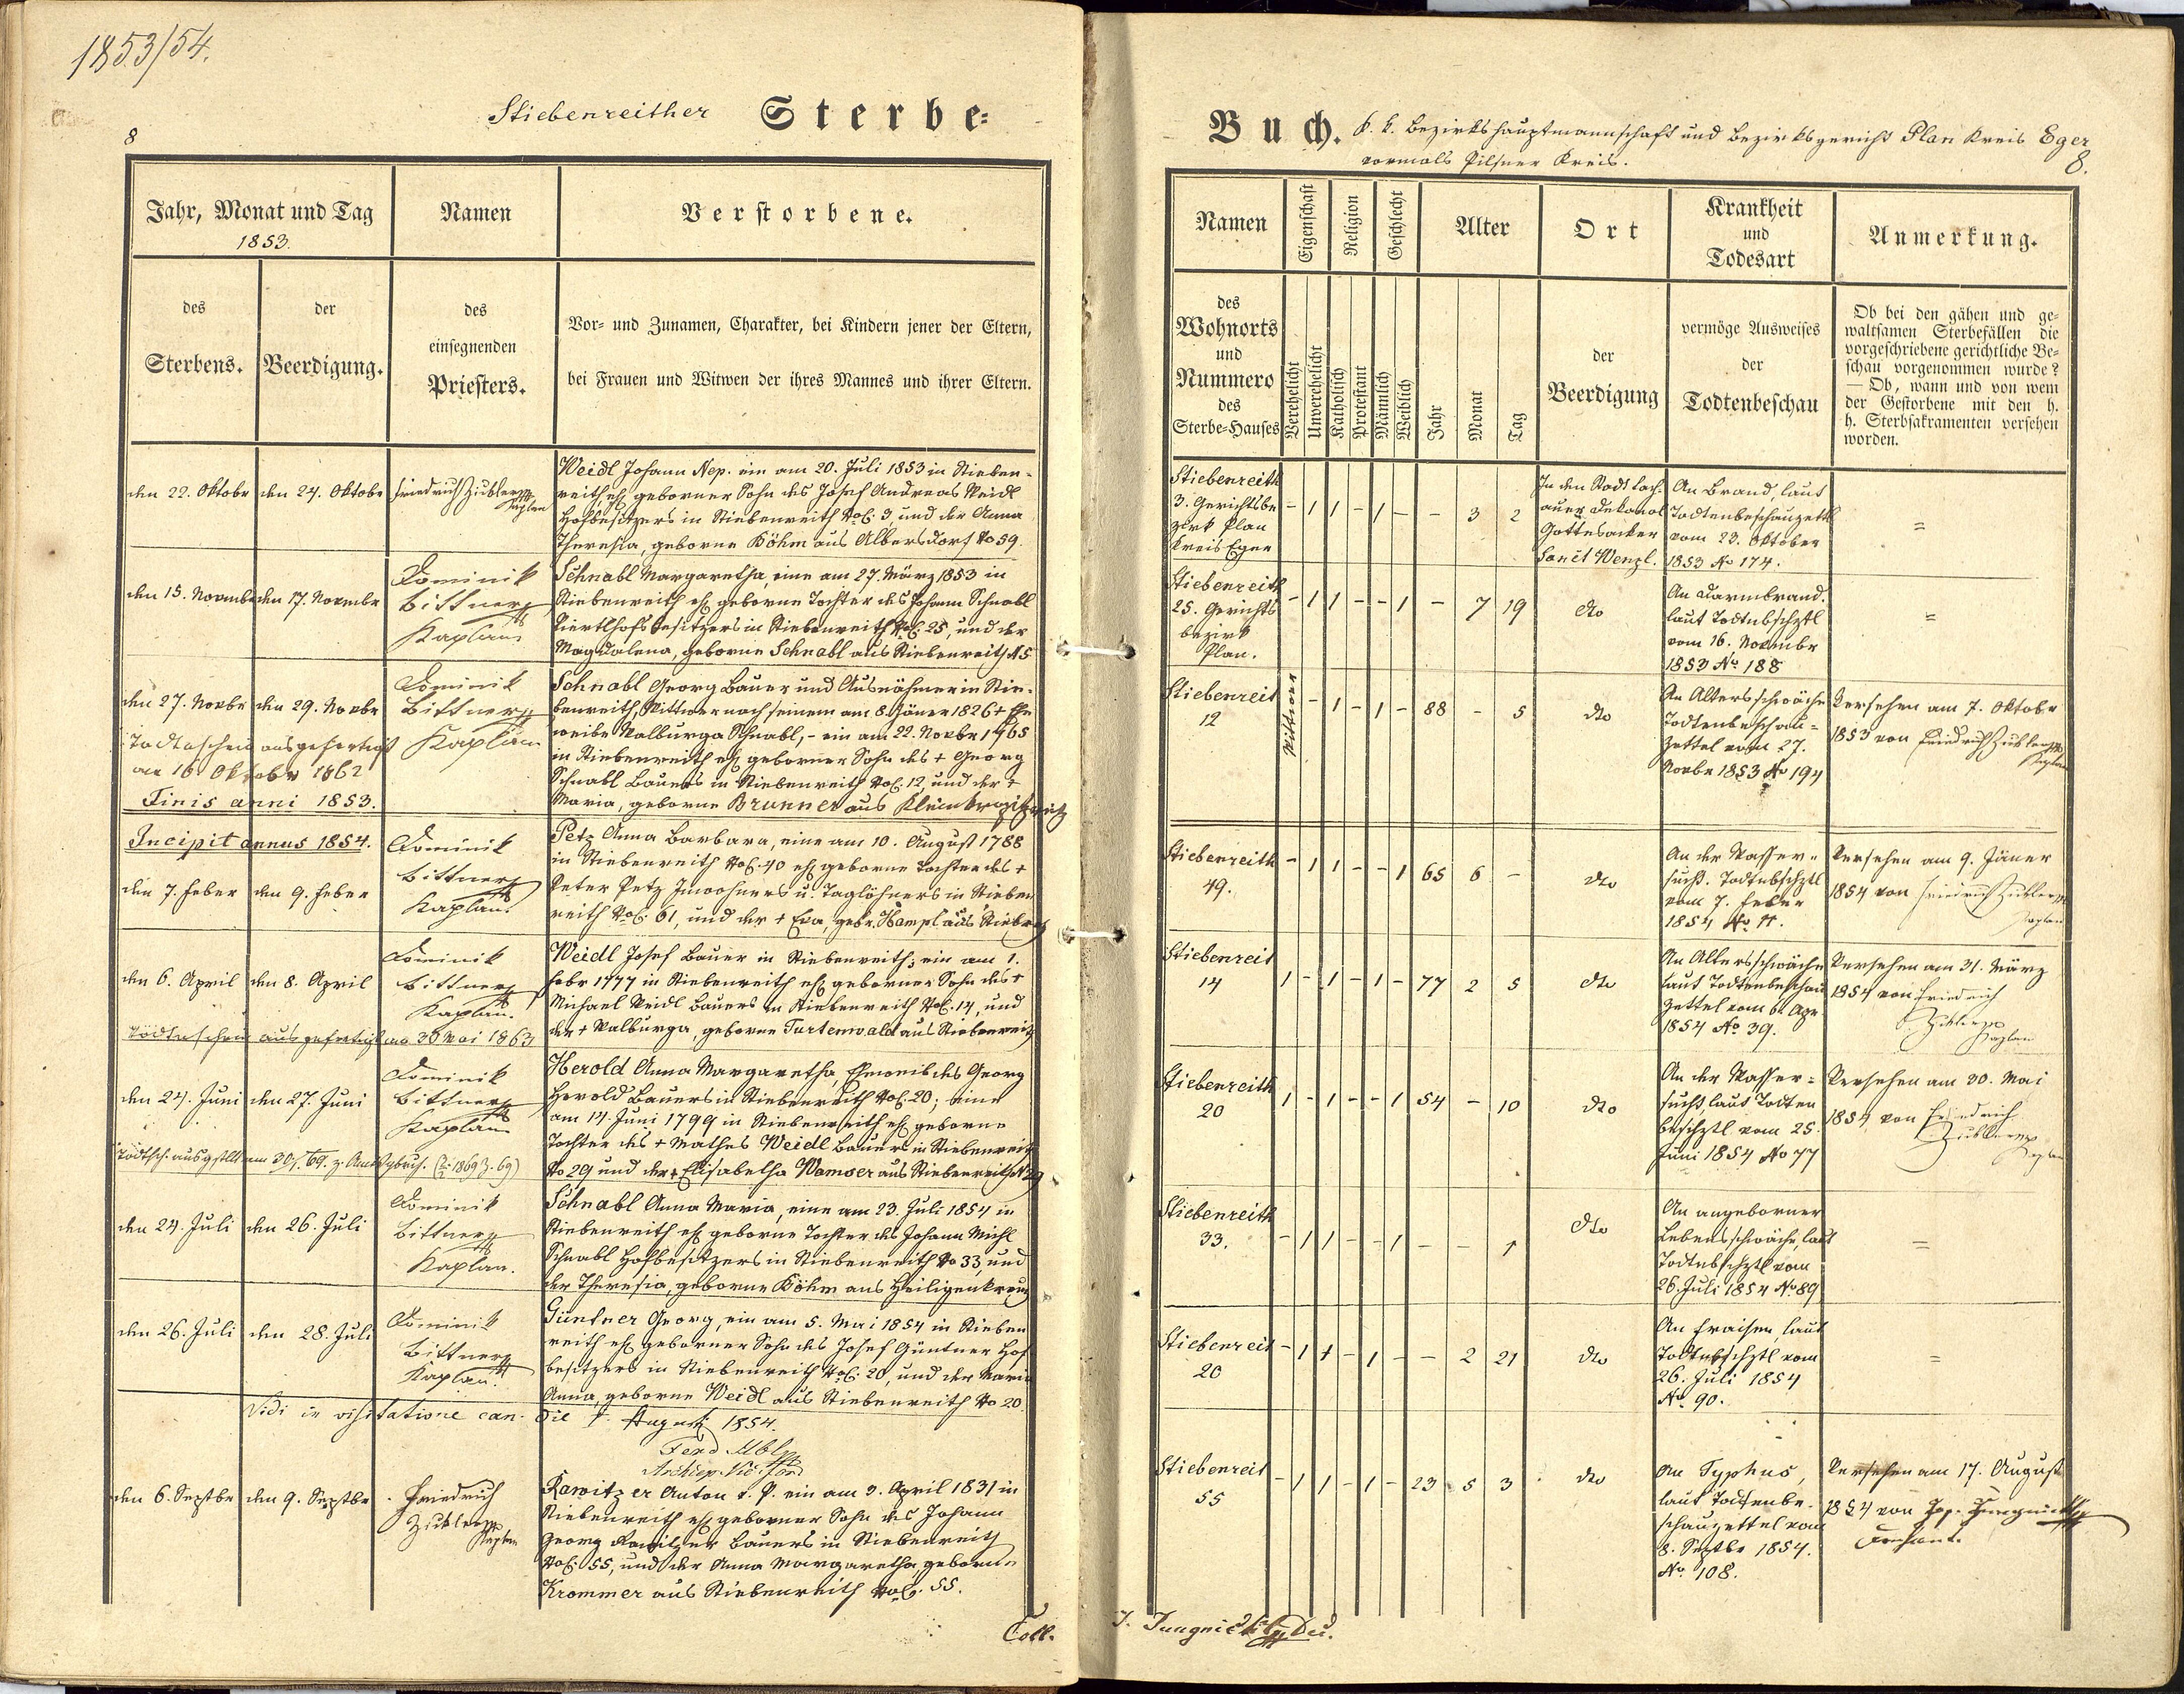 1853/54.
Stiebenreither Sterbe-
8
Jahr, Monat und Tag
1853.
Namen
Verstorbene.
des
Sterbens.
der
Beerdigung.
des
einsegnenden
Priesters.
Vor- und Zunamen, Charakter, bei Kindern jener der Eltern,
bei Frauen und Witwen der ihres Mannes und ihrer Eltern.
den 22. Oktobr
den 24. Oktobr
Friedrich Zickler
Kaplan
Weidl Johann Nep. ein am 20. Juli 1853 in Stieben-
reith ehl geborner Sohn des Josef Andreas Weidl
Hofbesitzers in Stiebenreith NoC. 3, und der Anna
Theresia, geborne Böhm aus Albersdorf No 59.
den 15. Novembr
den 17. Novembr
Dominik
Bittner
Kaplan
Schnabl Margaretha, eine am 27. März 1853 in
Stiebenreith ehl geborne Tochter des Johann Schnabl
Viertlhofs Besitzers in Stiebenreith NoC. 25, und der
Magdalena, geborne Schnabl aus Stiebenreith N 5
den 27. Novbr
den 29. Novbr
Todtenschein ausgefertigt
am 16 Oktober 1862
Finis anni 1853.
Dominik
Bittner
Kaplan
Schnabl Georg Bauer und Ausnähmer in Stie-
benreith, Wittwer nach seinem am 8. Jäner 1826 + Ehe
weibe Walburga Schnabl, - ein am 22. Novbr 1765
in Stiebenreith ehl geborner Sohn des + Georg
Schnabl Bauers in Stiebenreith NoC. 12 und der +
Maria, geborne Brunner aus
Incipit annus 1854.
den 7. Feber
den 9. Feber
Dominik
Bittner
Kaplan.
Petz Anna Barbara, eine am 10. August 1788
in Stiebenreith NoC. 40 ehl geborne Tochter des +
Peter Petz Inwohners u. Taglöhners in Stieben
reith NoC. 61, und der + Eva, gebr. Hampl aus Stiebrth
den 6. April
den 8. April
Dominik
Bittner
Kaplan.
Todtenschein ausgefertigt am 30 Mai 1863
Weidl Josef Bauer in Stiebenreith; ein am 1.
Febr 1777 in Stiebenreith ehl geborner Sohn des +
Michael Weidl Bauers in Stiebenreith NoC. 14, und
der + Walburga, geborne Turtenwald aus Stiebenreith
den 24. Juni
den 27. Juni
Dominik
Bittner
Kaplan
Todtsch. ausgstllt am 30/. 69.
Herold Anna Margaretha, Eheweib des Georg
Herold Bauers in Stiebenreith NoC. 20; eine
am 14. Juni 1799 in Stiebenreith ehl geborne
Tochter des + Mathes Weidl Bauers in Stiebenreith
No 29 und der + Elisabetha Wamser aus Stiebenreith N 29
den 24. Juli
den 26. Juli
Dominik
Bittner
Kaplan.
Schnabl Anna Maria, eine am 23. Juli 1854 in
Stiebenreith ehl geborne Tochter des Johann Michl
Schnabl Hofbesitzers in Stiebenreith No 33, und
der Theresia, geborne Böhm aus Heiligenkreuz
den 26. Juli
den 28. Juli
Dominik
Bittner
Kaplan.
Güntner Georg, ein am 5. Mai 1854 in Stieben
reith ehl geborner Sohn des Josef Güntner Hof
besitzers in Stiebenreith NoC. 20, und der Maria
Anna, geborne Weidl aus Stiebenreith No 20.
Vidi in visitatione can. die August 1854.
Ferd.
den 6. Septbr
den 9. Septbr
Friedrich
Zickler
Kaplan
Rawitzer Anton l. St. ein am 3. April 1831 in
Stiebenreith ehl geborner Sohn des Johann
Georg Rawitzer Bauers in Stiebenreith
NoC. 55, und der Anna Margaretha, geborne
Krommer aus Stiebenreith NoC. 55.
Coll.
Buch. k. k. Bezirkshauptmannschaft und Bezirksgericht Plan Kreis Eger
vormals Pilsner Kreis.
8.
Namen
Eigenschaft
Religion
Geschlecht
Alter
Ort
Krankheit
und
Todesart
Anmerkung.
des
Wohnorts
und
Nummero
des
Sterbe-Hauses
Verehelicht
Unverehelicht
Katholisch
Protestant
Männlich
Weiblich
Jahr
Monat
Tag
der
Beerdigung
vermöge Ausweises
der
Todtenbeschau
Ob bei den gähen und ge-
waltsamen Sterbefällen die
vorgeschriebene gerichtliche Be-
schau vorgenommen wurde?
— Ob, wann und von wem
der Gestorbene mit den h.
h. Sterbsakramenten versehen
worden.
Stiebenreith
3. Gerichtsbe
zirk Plan
Kreis Eger
- 1 1 - 1 - - 3 2
In den Stadt Tach-
auer Dekanal
Gottesacker
Sanct Wenzl.
An Brand, laut
Todtenbeschauzettl
vom 23. Oktober
1853 No 174.
=
Stiebenreith
25. Gerichts
bezirk
Plan.
- 1 1 - - 1 - 7 19
dto
An Darmbrand.
laut Todtnbschztl
vom 16. Novembr
1853 No 188
=
Stiebenreit
12
Wittwer
- 1 - 1 - 88 - 5
dto
An Altersschwäche
Todtenbeschau-
zettel vom 27.
Novbr 1853 No 194
Versehen am 7. Oktobr
1853 von Friedrich Zickler
Kaplan
Stiebenreith
49.
- 1 1 - - 1 65 6 -
dto
An der Wasser-
sucht. Todtnbschztl
vom 7. Feber
1854 No 11.
Versehen am 9. Jäner
1854 von Friedrich Zickler
Kaplan
Stiebenreit
14
1 - 1 - 1 - 77 2 5
dto
An Altersschwäche
laut Todtenbeschau
zettel vom 6. Apr
1854 No 39.
Versehen am 31. März
1854 von Friedrich
Zickler
Kaplan
Stiebenreith
20
1 - 1 - - 1 54 - 10
dto
An der Wasser-
sucht, laut Todten
beschztl vom 25
Juni 1854 No 77
Versehen am 30. Mai
1854 von Friedrich
Zickler
Kaplan
Stiebenreith
33.
- 1 1 - - 1 - - 1
dto
An angeborner
Lebensschwäche, laut
Todtnbschztl vom
26. Juli 1854 No 89
=
Stiebenreit
20
- 1 1 - 1 - - 2 21
dto
An Fraisen, laut
Todtnbschztl vom
26. Juli 1854
No 90.
=
Stiebenreit
55
- 1 1 - 1 - 23 5 3
dto
An Typhus,
laut Todtenbe-
schauzettel vom
8. Septbr 1854.
No 108.
Versehen am 17. August
1854 von Jos. Jungnickl
Dechant.
J. Jungnickl Dec.